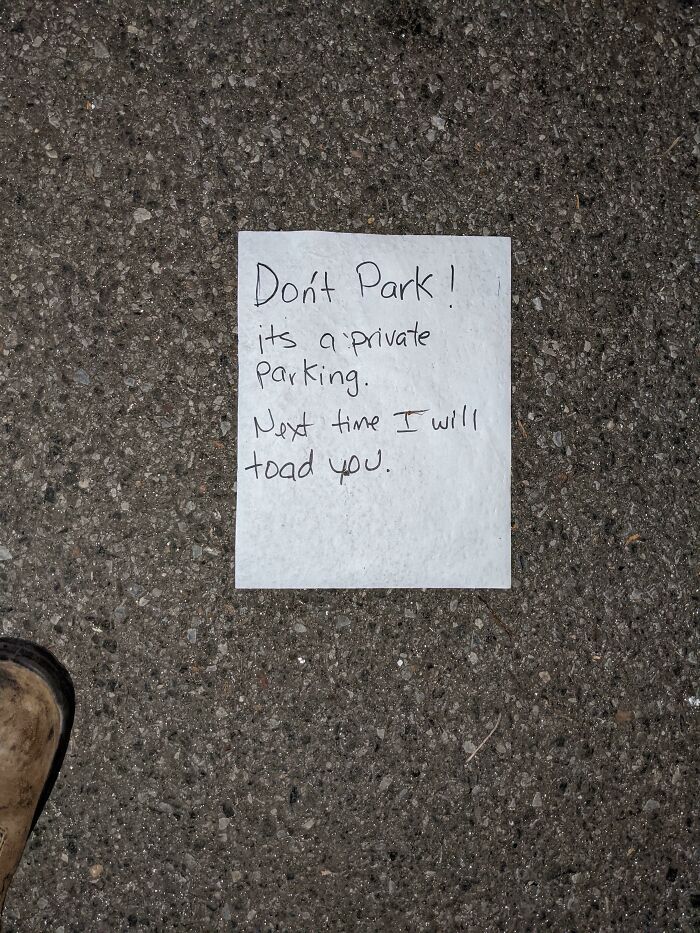 Don't Park!
its a private
Parking.
Next time I will
toad you.